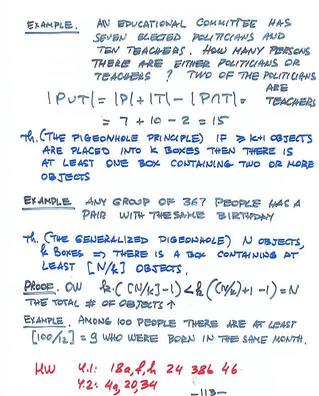 EXAMPLE. AN EDUCATIONAL COMMITTEE HAS
SEVEN ELECTED POLITICIANS AND
TEN TEACHERS. HOW MANY PERSONS
THERE ARE EITHER POLITICIANS OR
TEACHERS ? TWO OF THE POLITICIANS
ARE
TEACHERS
|P∪T| = |P|+|T| - |P∩T| =
= 7 + 10 - 2 = 15
Th. (THE PIGEONHOLE PRINCIPLE) IF ≥ k+1 OBJECTS
ARE PLACED INTO k BOXES THEN THERE IS
AT LEAST ONE BOX CONTAINING TWO OR MORE
OBJECTS
EXAMPLE ANY GROUP OF 367 PEOPLE HAS A
PAIR WITH THE SAME BIRTHDAY
Th. (THE GENERALIZED PIGEONHOLE) N OBJECTS,
k BOXES ⇒ THERE IS A BOX CONTAINING AT
LEAST ⌈N/k⌉ OBJECTS.
PROOF. OW k·(⌈N/k⌉-1) < k((N/k)+1-1) = N
THE TOTAL # OF OBJECTS ↑
EXAMPLE. AMONG 100 PEOPLE THERE ARE AT LEAST
⌈100/12⌉ = 9 WHO WERE BORN IN THE SAME MONTH.
HW 4.1: 18a,f,h 24 38b 46
4.2: 4a, 20, 34
-113-